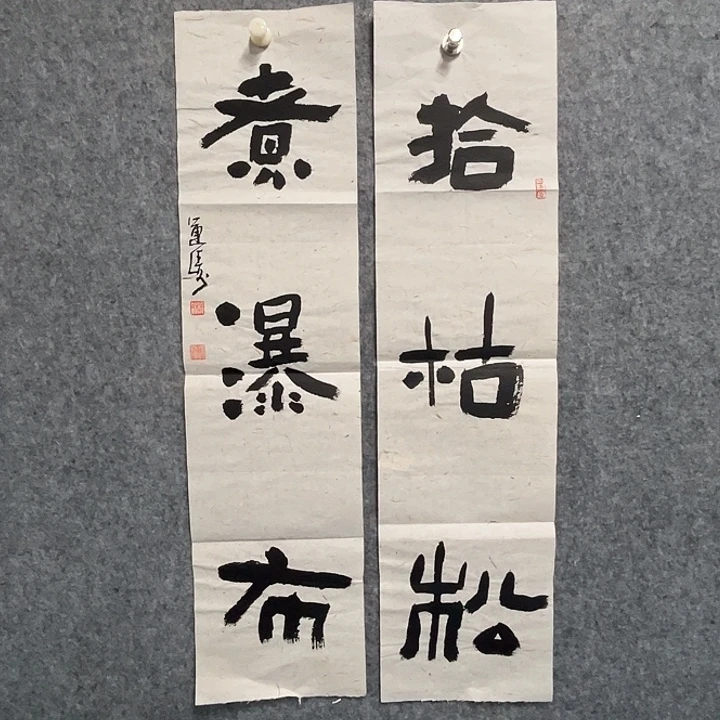 拾枯松
煮瀑布